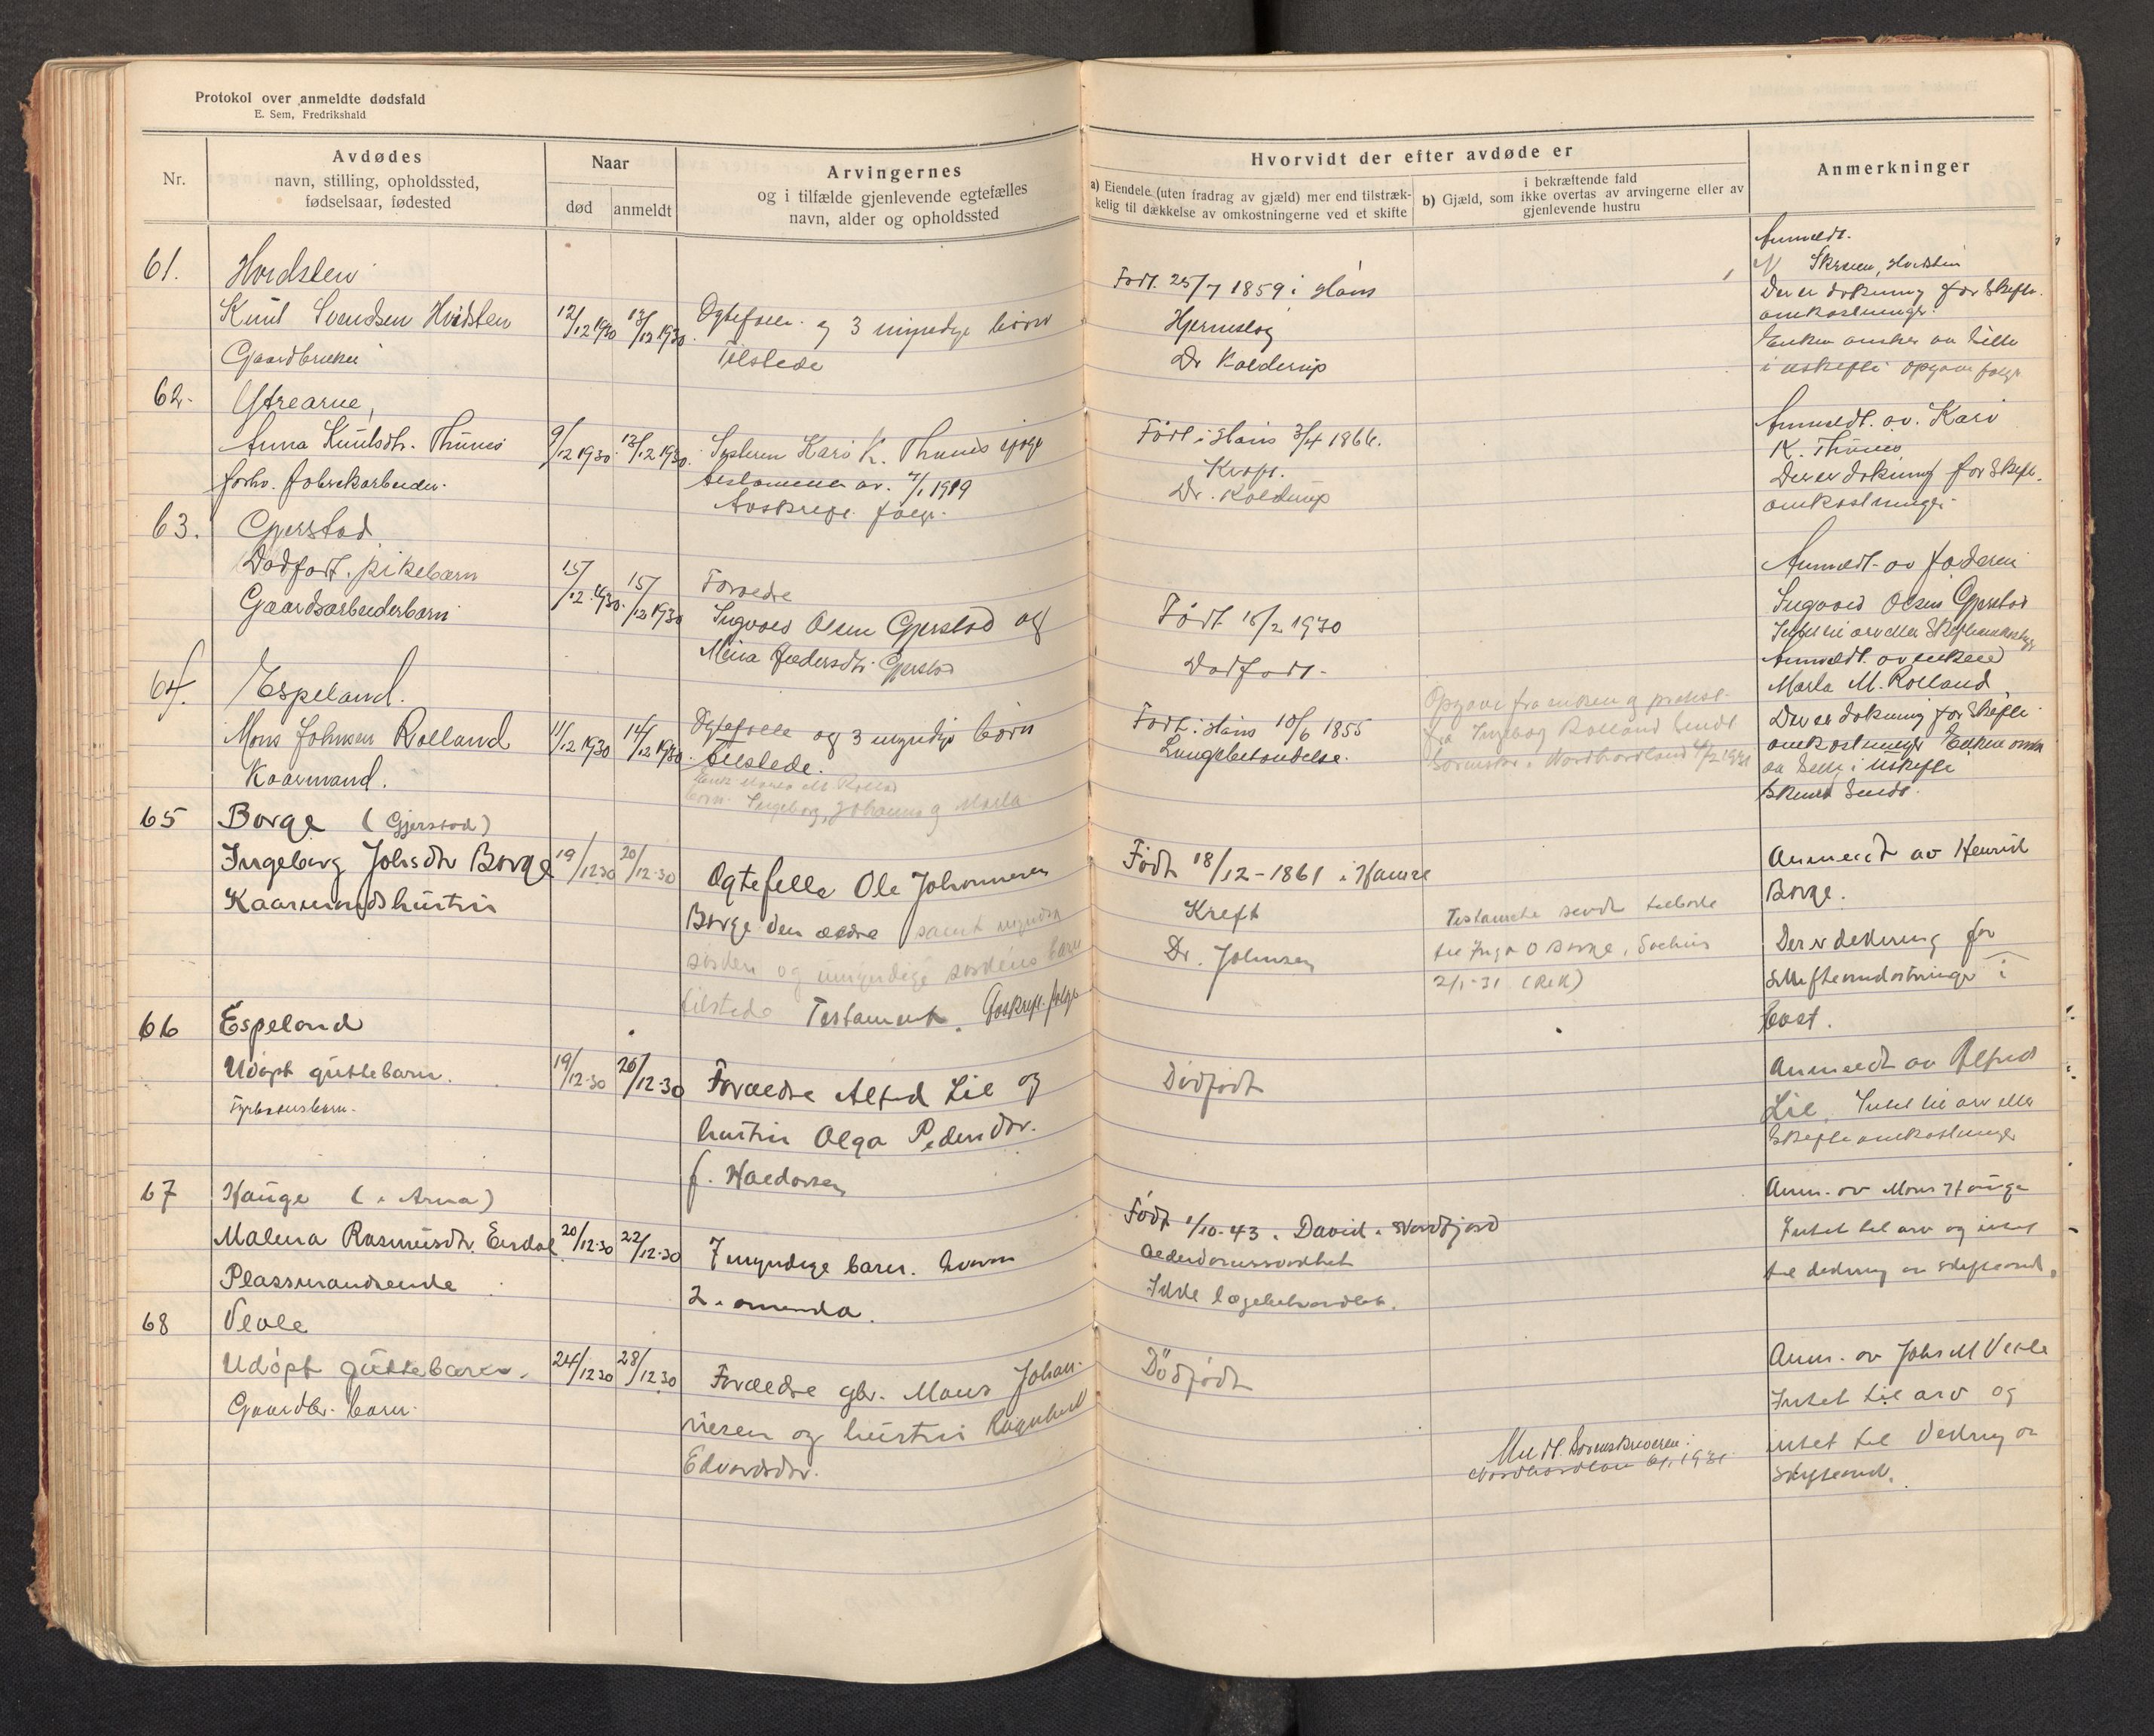 Protokol over anmeldte dødsfald
E. Sem, Fredrikshald
Nr.
Avdødes
navn, stilling, opholdssted,
fødselsaar, fødested
Naar
død
anmeldt
Arvingernes
og i tilfælde gjenlevende egtefælles
navn, alder og opholdssted
Hvorvidt der efter avdøde er
a) Eiendele (uten fradrag av gjæld) mer end tilstræk-
kelig til dækkelse av omkostningerne ved et skifte
i bekræftende fald
b) Gjæld, som ikke overtas av arvingerne eller av
gjenlevende hustru
Anmerkninger
61.
Hvidsten
Knut Svendsen Hvidsten
Gaardbruker
12/12 1930
13/12 1930.
Egtefælle og 3 myndige børn
Tilstede
Født 25/7 1859 i Haus
Hjerneslag
Dr Kolderup
Anmeldt.
Hvidsten
Der er dekning for Skifte-
omkostninger.
Enken ønsker at sitte
i uskifte opgave følger
62.
Ytrearne,
Anna Knutsdtr. Thunes
forhv. fabrikarbeider.
9/12 1930
13/12 1930.
Søsteren Kari K. Thunes ifølge
testamente av 7/1 1919
Avskrift følger.
Født i Haus 3/4 1866.
Kræft.
Dr. Kolderup
Anmeldt av Kari
K. Thunes
Der er dekning for Skifte-
omkostninger
63.
Gjerstad
Dødfødt pikebarn
Gaardsarbeiderbarn
15/12 1930.
15/12 1930
Forældre
Ingvald Olsen Gjerstad og
Mina Pedersdtr. Gjerstad
Født 15/12 1930
Dødfødt.
Anmeldt av faderen
Ingvald Olsen Gjerstad
Intet til arv eller Skifteomkostninger
64.
Espeland.
Mons Johnsen Rolland
Kaarmand.
11/12 1930
14/12 1930.
Egtefælle og 3 myndige børn
tilstede.
Enke Marta M. Rolland
børn Ingeborg, Johannes og Marta
Født i Haus 10/6 1855
Lungebetændelse.
Opgave fra enken og
fra Ingeborg Rolland sendt
Sorenskr. i Nordhordland 4/2 1931
Anmeldt av enken
Marta M. Rolland
Der er dekning for Skifte
omkostninger Enken ønsker
at sitte i uskifte
Skema sendt.
65
Borge (Gjerstad)
Ingeborg Johsdtr Borge
Kaarmandshustru
19/12 30
20/12-30
Egtefelle Ole Johannesen
Borge den ældre samt myndige
søsken og umyndige søskens barn
tilstede Testament. Avskrift følge
Født 18/12-1861 i Hamre
Kreft
Dr. Johnsen
Testamente sendt tilbake
til Inga O Borge,
2/1-31
Anmeldt av Henrik
Borge.
Der er dekning for
skifteomkostninger i
bost.
66
Espeland
Udøpt guttebarn.
Fyrbøtersbarn.
19/12-30
20/12-30
Forældre Alfred Lie og
hustru Olga Pedersdtr.
f. Haldorsen
Dødfødt
Anmeldt av Alfred
Lie. Intet til arv eller
Skifteomkostninger
67
Hauge (i Arna)
Malena Rasmusdtr. Endal
Plassmandsenke
20/12-30
22/12-30
7 myndige barn. hvorav
2 i amerika.
Født 1/10-43 i David i Nordfjord
Alderdomssvakhet
Ikke lægebehandlet.
Anm. av Mons Hauge
Intet til arv og intet
til dekning av skifteomk.
68
Vevle
Udøpt guttebarn.
Gaardbr. barn.
24/12 30
28/12 30
Forældre gbr. Mons Johan-
nesen og hustru Ragnhild
Edvardsdtr.
Dödfødt
Medt. Sorenskriveren i
Nordhordland 6/1 1931
Anm. av Johs M Vevle
Intet til arv og
intet til dekning av
skifteomk.